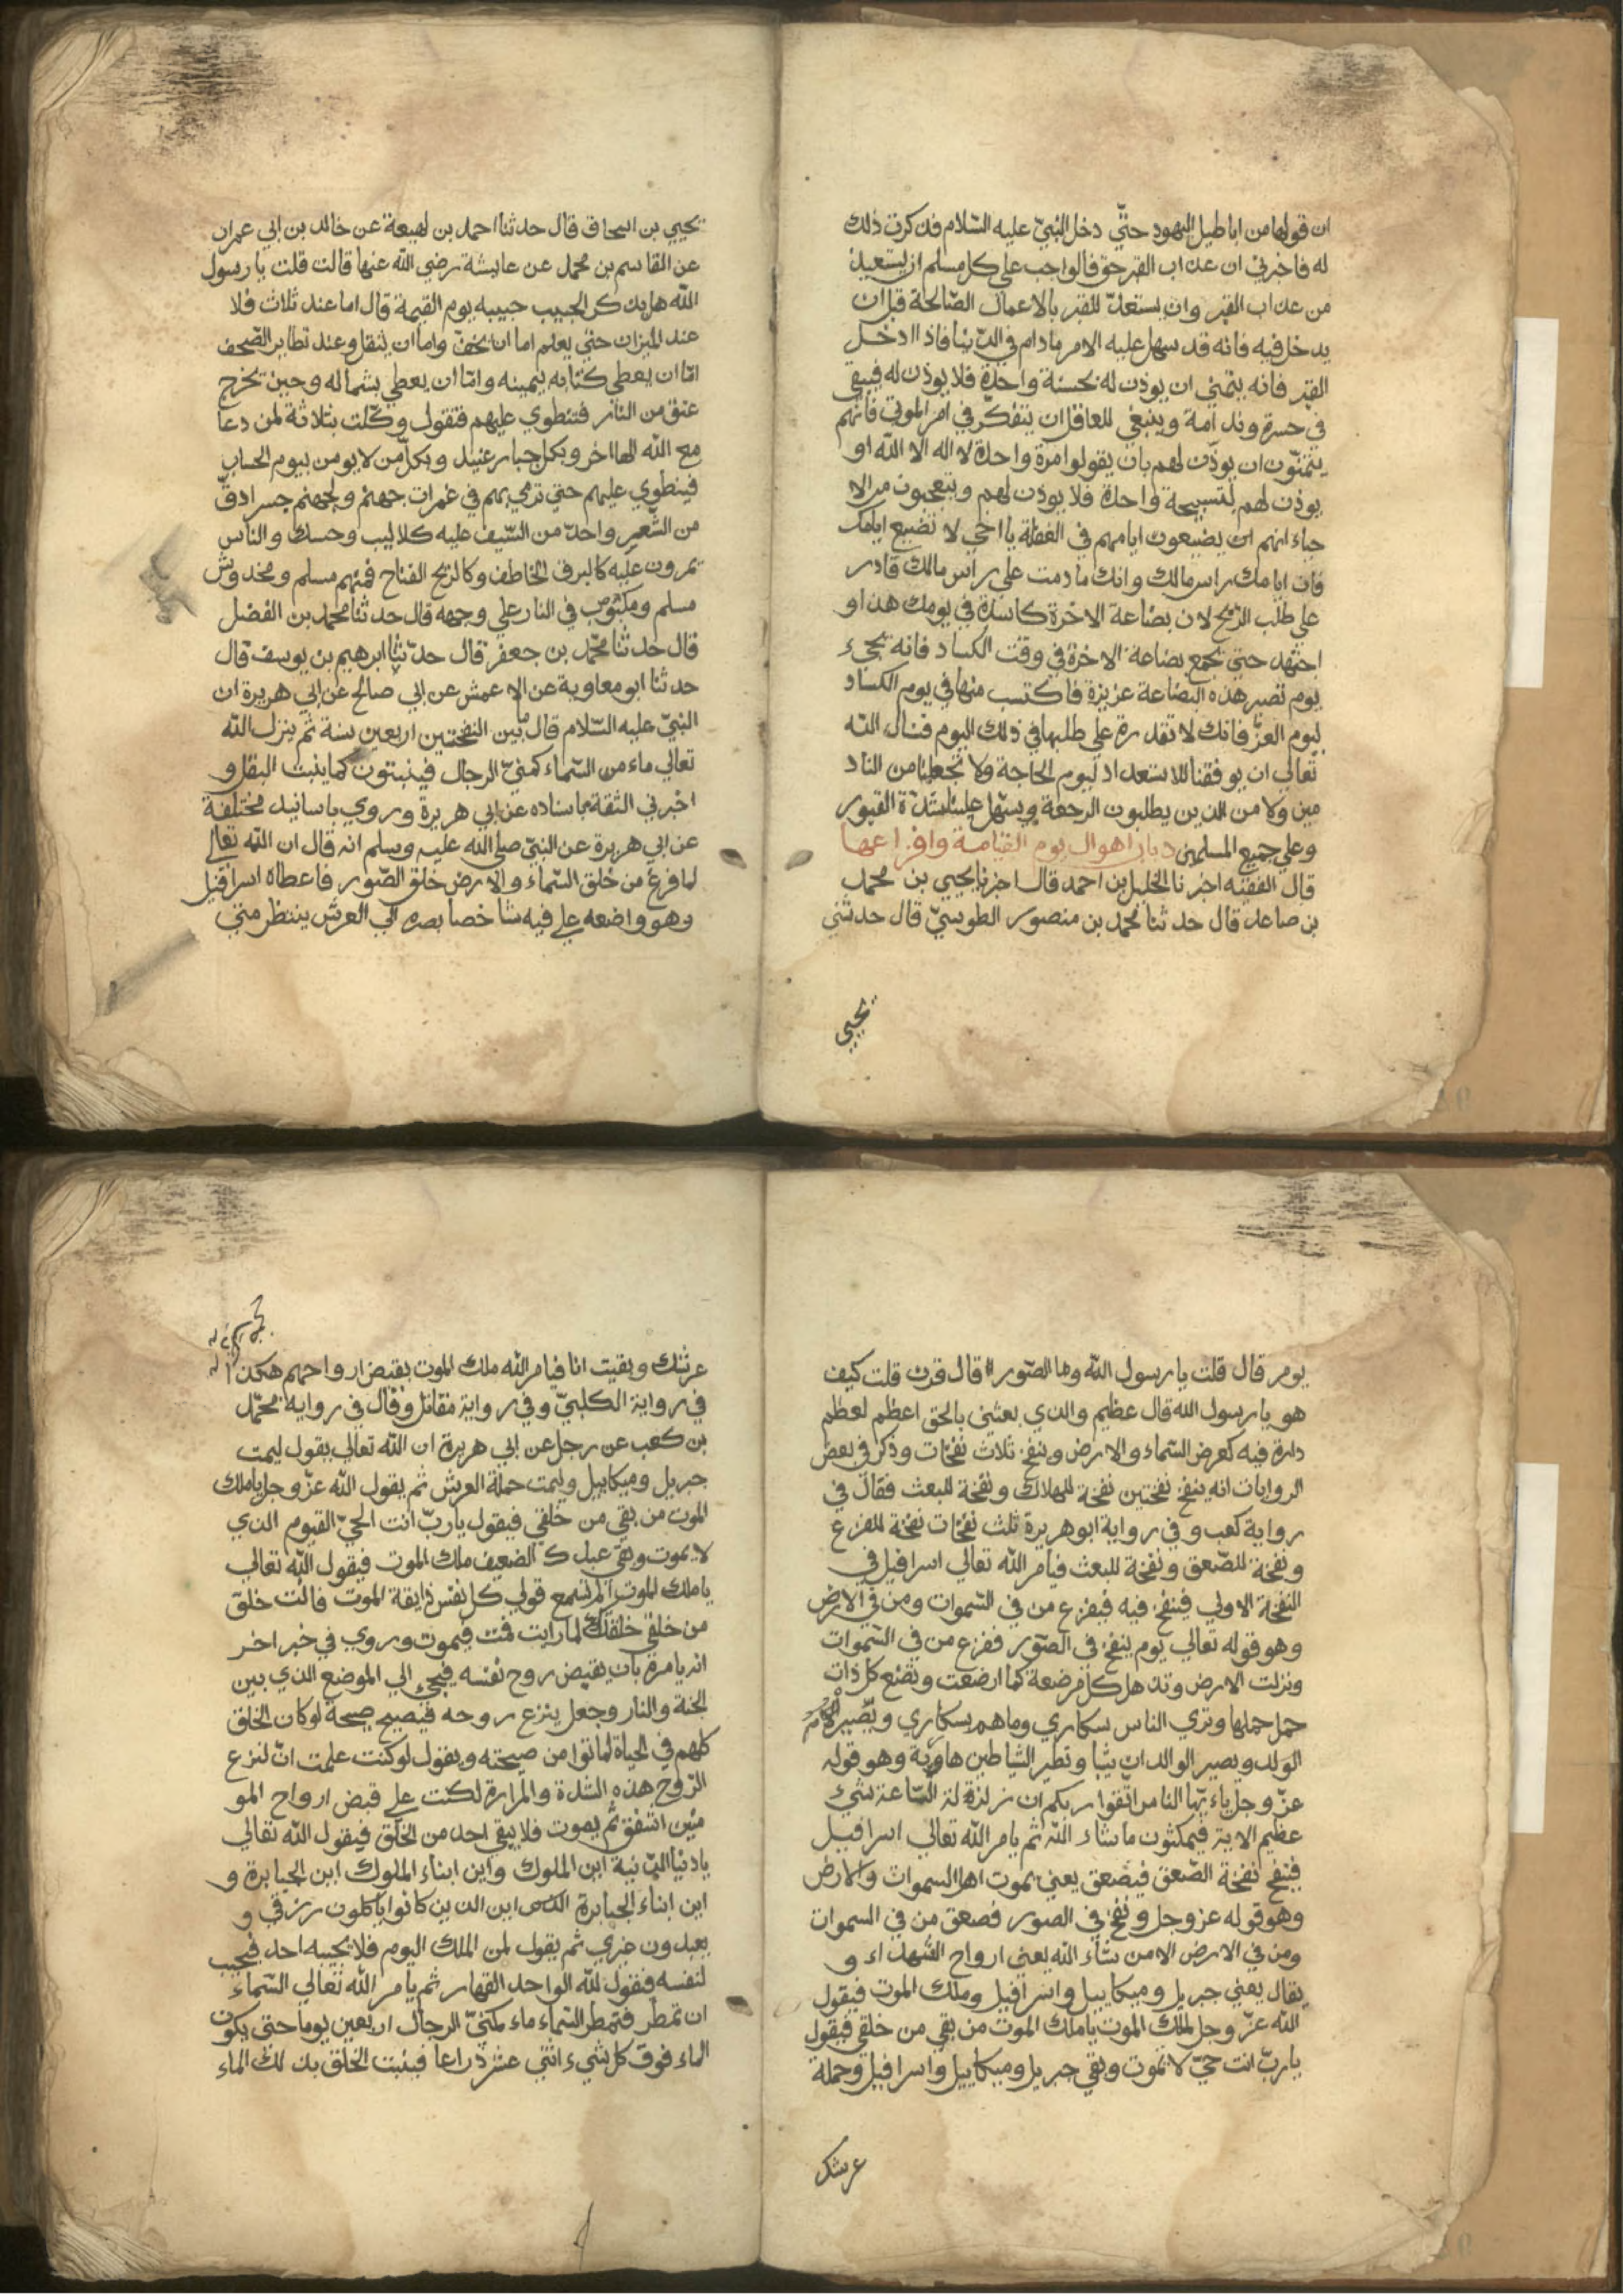 ان قولها من اباطيل اليهود حتّي دخل النبيّ عليه السّلام فذكرت ذلك
له فاخبرني ان عذاب القبر حق فالواجب علي كل مسلم ان يستعيذ
من عذاب القبر وان يستعدّ للقبر بالاعمال الصّالحة قبل ان
يدخل فيه فانه قد سهل عليه الامر مادام في الدّنيا فاذا ادخل
القبر فانه يتمني ان يوذن له بحسنة واحدة فلا يوذن له فيبقي
في حسرة وندامة وينبغي للعاقل ان يتفكّر في امر الموتي فانهم
يتمنّون ان يوذن لهم بان يقولوا مرة واحدة لا اله الا الله او
يوذن لهم لتسبيحة واحدة فلا يوذن لهم ويتعجبون من الا
حياء انهم ان يضيعون ايامهم في الغفلة يا اخي لا تضيع ايامك
فان ايامك راس مالك وانك ما دمت علي راس مالك قادر
علي طلب الرّبح لان بضاعة الاخرة كاسدة في يومك هذا و
اجتهد حتي تجمع بضاعة الاخرة في وقت الكساد فانه يجيء
يوم تصير هذه البضاعة عزيزة فاكتسب منها في يوم الكساد
ليوم العزّ فانك لا تقدر علي طلبها في ذلك اليوم فنسال الله
تعالي ان يوفقنا للاستعداد ليوم الحاجة ولا تجعلنا من الناد
مين ولا من الذين يطلبون الرجعة ويسهل علينا شدّة القبور
وعلي جميع المسلمين باب اهوال يوم القيامة وافزاعها
قال الفقيه اخبرنا الخليل بن احمد قال اخبرنا يحيي بن محمد
بن صاعد قال حدثنا محمد بن منصور الطوسيّ قال حدثني
يحيي
يحيي بن اسحاق قال حدثنا احمد بن لهيعة عن خالد بن ابي عمران
عن القاسم بن محمد عن عايشة رضي الله عنها قالت قلت يا رسول
الله هل يذكر الحبيب حبيبه يوم القيمة قال اما عند ثلاث فلا
عند الميزان حتي يعلم اما ان يخفّ واما ان يثقل وعند تطاير الصّحف
امّا ان يعطي كتابه بيمينه وامّا ان يعطي بشماله وحين تخرج
عنق من النار فتنطوي عليهم فتقول وكّلت بثلاثة لمن دعا
مع الله الها اخر وبكل جبار عنيد وبكلّ من لا يومن بيوم الحساب
فينطوي عليهم حتي ترمي بهم في غمرات جهنم ولجهنم جسر ادقّ
من الشّعر واحدّ من السّيف عليه كلاليب وحسك والناس
يمرون عليه كالبرق الخاطف وكالريح فمنهم مسلم ومخدوش
مسلم ومكبوب في النار علي وجهه قال حدثنا محمد بن الفضل
قال حدثنا محمّد بن جعفر قال حدّثنا ابرهيم بن يوسف قال
حدثنا ابو معاوية عن الاعمش عن ابي صالح عن ابي هريرة ان
النبيّ عليه السّلام قال بين النفختين اربعين سنة ثم ينزل الله
تعالي ماء من السّماء كمنيّ الرجال فينبتون كما ينبت البقل و
اخبرني الثقة باسناده عن ابي هريرة وروي باسانيد مختلفة
عن ابي هريرة عن النبيّ صلي الله عليه وسلم انه قال ان الله تعالي
لما فرغ من خلق السّماء والارض خلق الصّور فاعطاه اسرافيل
وهو واضعه علي فيه شاخصا بصره الي العرش ينتظر متي
يومر قال قلت يا رسول الله وما الصّور قال قرن قلت كيف
هو يا رسول الله قال عظيم والذي بعثني بالحق اعظم لعظم
دارة فيه كعرض السّماء والارض وينفخ ثلاث نفخات وذكر في بعض
الروايات انه ينفخ نفختين نفخة للهلاك ونفخة للبعث فقال في
رواية كعب وفي رواية ابو هريرة ثلث نفخات نفخة للفزع
ونفخة للصّعق ونفخة للبعث فيامر الله تعالي اسرافيل في
النفخة الاولي فينفخ فيه فيفزع من في السّموات ومن في الارض
وهو قوله تعالي يوم ينفخ في الصّور ففزع من في السّموات
ونزلت الارض وتذهل كل مرضعة عما ارضعت وتضع كل ذات
حمل حملها وتري الناس سكاري وما هم بسكاري
الولد ويصير الوالدان شيبا وتطير الشياطين هاربة وهو قوله
عزّ وجل ياءيّها الناس اتّقوا ربكم ان زلزلة السّاعة شيء
عظيم الاية فيمكثون ماشاء الله ثم يامر الله تعالي اسرافيل
فينفخ نفخة الصّعق فيصعق يعني يموت اهل السموات والارض
وهو قوله عزوجل ونفخ في الصور فصعق من في السموات
ومن في الارض الا من شاء الله يعني ارواح الشهداء و
يقال يعني جبريل وميكاييل واسرافيل وملك الموت فيقول
الله عزّ وجل لملك الموت يا ملك الموت من بقي من خلقي فيقول
يا ربّ انت حيّ لا تموت وبقي جبريل وميكاييل واسرافيل وحملة
عرشك
عرشك وبقيت انا فيامر الله ملك الموت بقبض ارواحهم هكذا
في رواية الكلبيّ وفي رواية مقاتل وقال في رواية محمّد
بن كعب عن رجل عن ابي هريرة ان الله تعالي يقول ليمت
جبريل وميكاييل وليمت حملة العرش ثم يقول الله عزّ وجل يا ملك
الموت من بقي من خلقي فيقول يا ربّ انت الحيّ القيوم الذي
لا يموت وبقي عبدك الضعيف ملك الموت فيقول الله تعالي
يا ملك الموت الم تسمع قولي كل نفس ذايقة الموت فانت خلق
من خلقي خلقتك لما رايت فمت فيموت وروي في خبر اخر
انه يامره بان يقبض روح نفسه فيجيء الي الموضع الذي بين
الجنة والنار وجعل ينزع روحه فيصيح صيحة لو كان الخلق
كلهم في الحياة لماتوا من صيحته ويقول لو كنت علمت انّ لنزع
الرّوح هذه الشدة والمرارة لكنت علي قبض ارواح المو
مٔنين اشفق ثم يموت فلا يبقي احد من الخلق فيقول الله تعالي
يا دنيا الدّنية اين الملوك واين ابناء الملوك اين الجبابرة و
اين ابناء الجبابرة اين الذين كانوا ياكلون رزقي و
يعبدون غيري ثم يقول لمن الملك اليوم فلا يجيبه احد فيجيب
لنفسه فيقول لله الواحد القهار ثم يامر الله تعالي السّماء
ان تمطر فتمطر السّماء ماء كمنيّ الرجال اربعين يوما حتي يكون
الماء فوق كل شيء اثني عشر ذراعا فينبت الخلق بذلك الماء